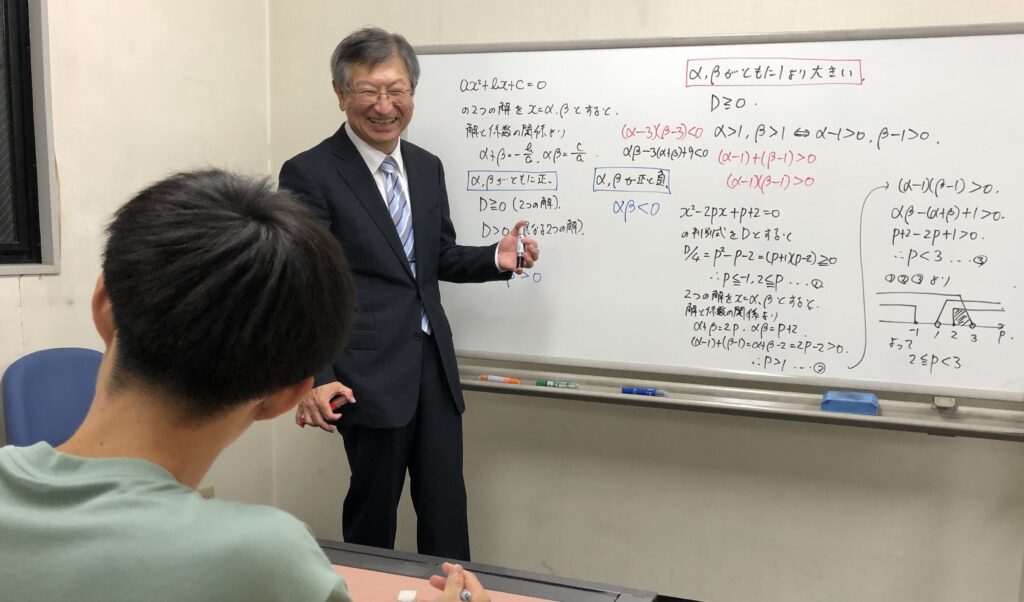 ax²+bx+c=0
の2つの解をx=α,βとすると、
解と係数の関係より
α+β=-b/a, αβ=c/a.
α,βがともに正.
D≧0 (2つの解).
D>0 (異なる2つの解).
β>0
(α-3)(β-3)<0
αβ-3(α+β)+9<0
α,βが正と負.
αβ<0
α,βがともに1より大きい.
D≧0.
α>1, β>1 ⇔ α-1>0, β-1>0.
(α-1)+(β-1)>0
(α-1)(β-1)>0
x²-2px+p+2=0
の判別式をDとすると
D/4=p²-p-2=(p+1)(p-2)≧0
∴p≦-1, 2≦p …①
2つの解をx=α,βとすると、
解と係数の関係より
α+β=2p. αβ=p+2.
(α-1)+(β-1)=α+β-2=2p-2>0.
∴p>1 …②
(α-1)(β-1)>0.
αβ-(α+β)+1>0.
p+2-2p+1>0.
∴p<3 …③
①②③より
-1 1 2 3 p
よって
2≦p<3